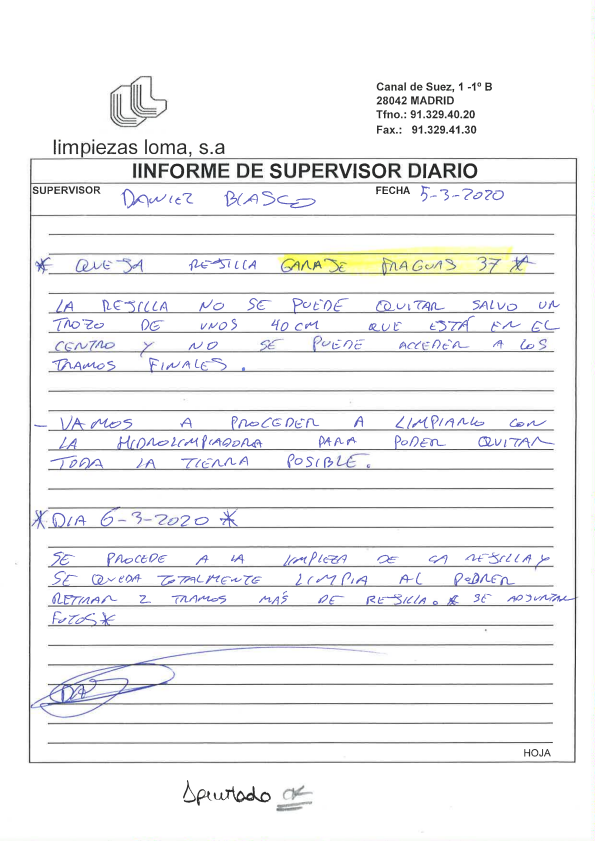 Canal de Suez, 1 -1º B
28042 MADRID
Tfno.: 91.329.40.20
Fax.: 91.329.41.30
limpiezas loma, s.a
IINFORME DE SUPERVISOR DIARIO
SUPERVISOR DANIEL BLASCO FECHA 5-3-2020
* QUEJA REJILLA GARAJE FRAGUAS 37 *
LA REJILLA NO SE PUEDE QUITAR SALVO UN
TROZO DE UNOS 40 CM QUE ESTÁ EN EL
CENTRO Y NO SE PUEDE ACCEDER A LOS
TRAMOS FINALES.
- VAMOS A PROCEDER A LIMPIARLO CON
LA HIDROLIMPIADORA PARA PODER QUITAR
TODA LA TIERRA POSIBLE.
* DIA 6-3-2020 *
SE PROCEDE A LA LIMPIEZA DE LA REJILLA Y
SE QUEDA TOTALMENTE LIMPIA AL PODRER
RETIRAR 2 TRAMOS MÁS DE REJILLA. * SE ADJUNTAN
FOTOS *
DA
HOJA
Apuntado OK